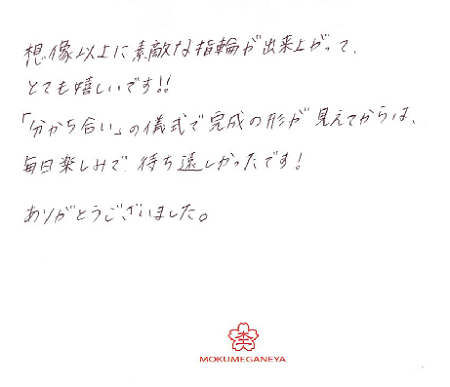 想像以上に素敵な指輪が出来上がって、
とても嬉しいです!!
「分かち合い」の儀式で完成の形が見えてからは、
毎日楽しみで待ち遠しかったです！
ありがとうございました。
MOKUMEGANEYA